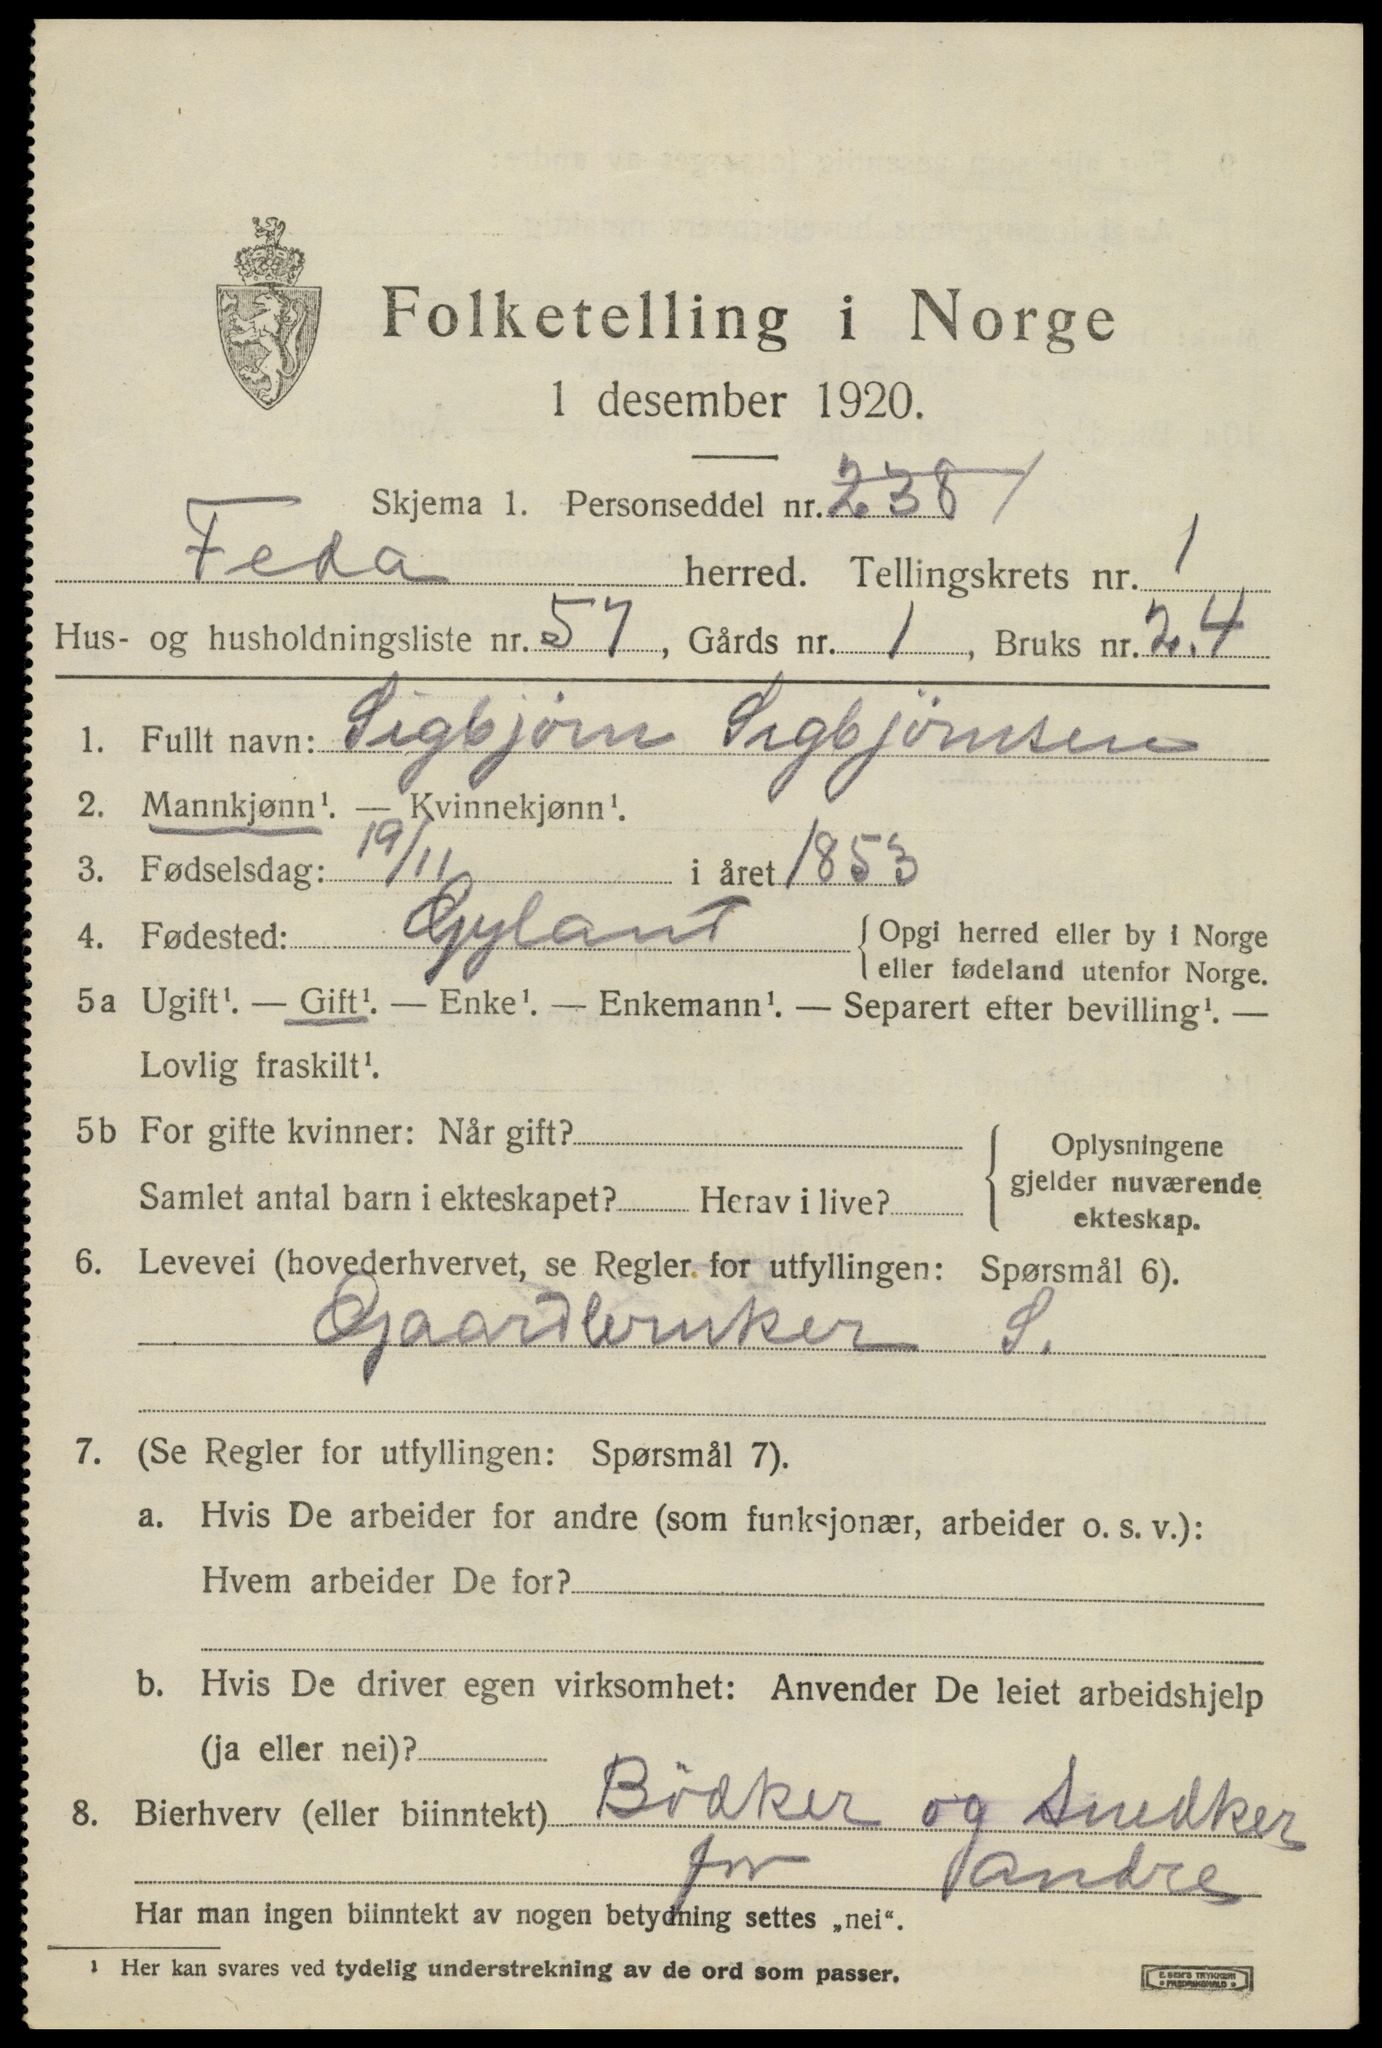 Folketelling i Norge
1 desember 1920.
Skjema 1. Personseddel nr. 238
Feda herred. Tellingskrets nr. 1
Hus- og husholdningsliste nr. 57, Gårds nr. 1, Bruks nr. 2.4
1. Fullt navn: Sigbjörn Sigbjörnsen
2. Mannkjønn¹. — Kvinnekjønn¹.
3. Fødselsdag: 19/11 i året 1853
4. Fødested: Gyland { Opgi herred eller by i Norge
eller fødeland utenfor Norge.
5a Ugift¹. — Gift¹. — Enke¹. — Enkemann¹. — Separert efter bevilling¹. —
Lovlig fraskilt¹.
5b For gifte kvinner: Når gift?
Samlet antal barn i ekteskapet? Herav i live?
{ Oplysningene
gjelder nuværende
ekteskap.
6. Levevei (hovederhvervet, se Regler for utfyllingen: Spørsmål 6).
Gaardbruker S.
7. (Se Regler for utfyllingen: Spørsmål 7).
a. Hvis De arbeider for andre (som funksjonær, arbeider o. s. v.):
Hvem arbeider De for?
b. Hvis De driver egen virksomhet: Anvender De leiet arbeidshjelp
(ja eller nei)?
8. Bierhverv (eller biinntekt) Bödker og Snedker
for andre
Har man ingen biinntekt av nogen betydning settes „nei“.
1 Her kan svares ved tydelig understrekning av de ord som passer.